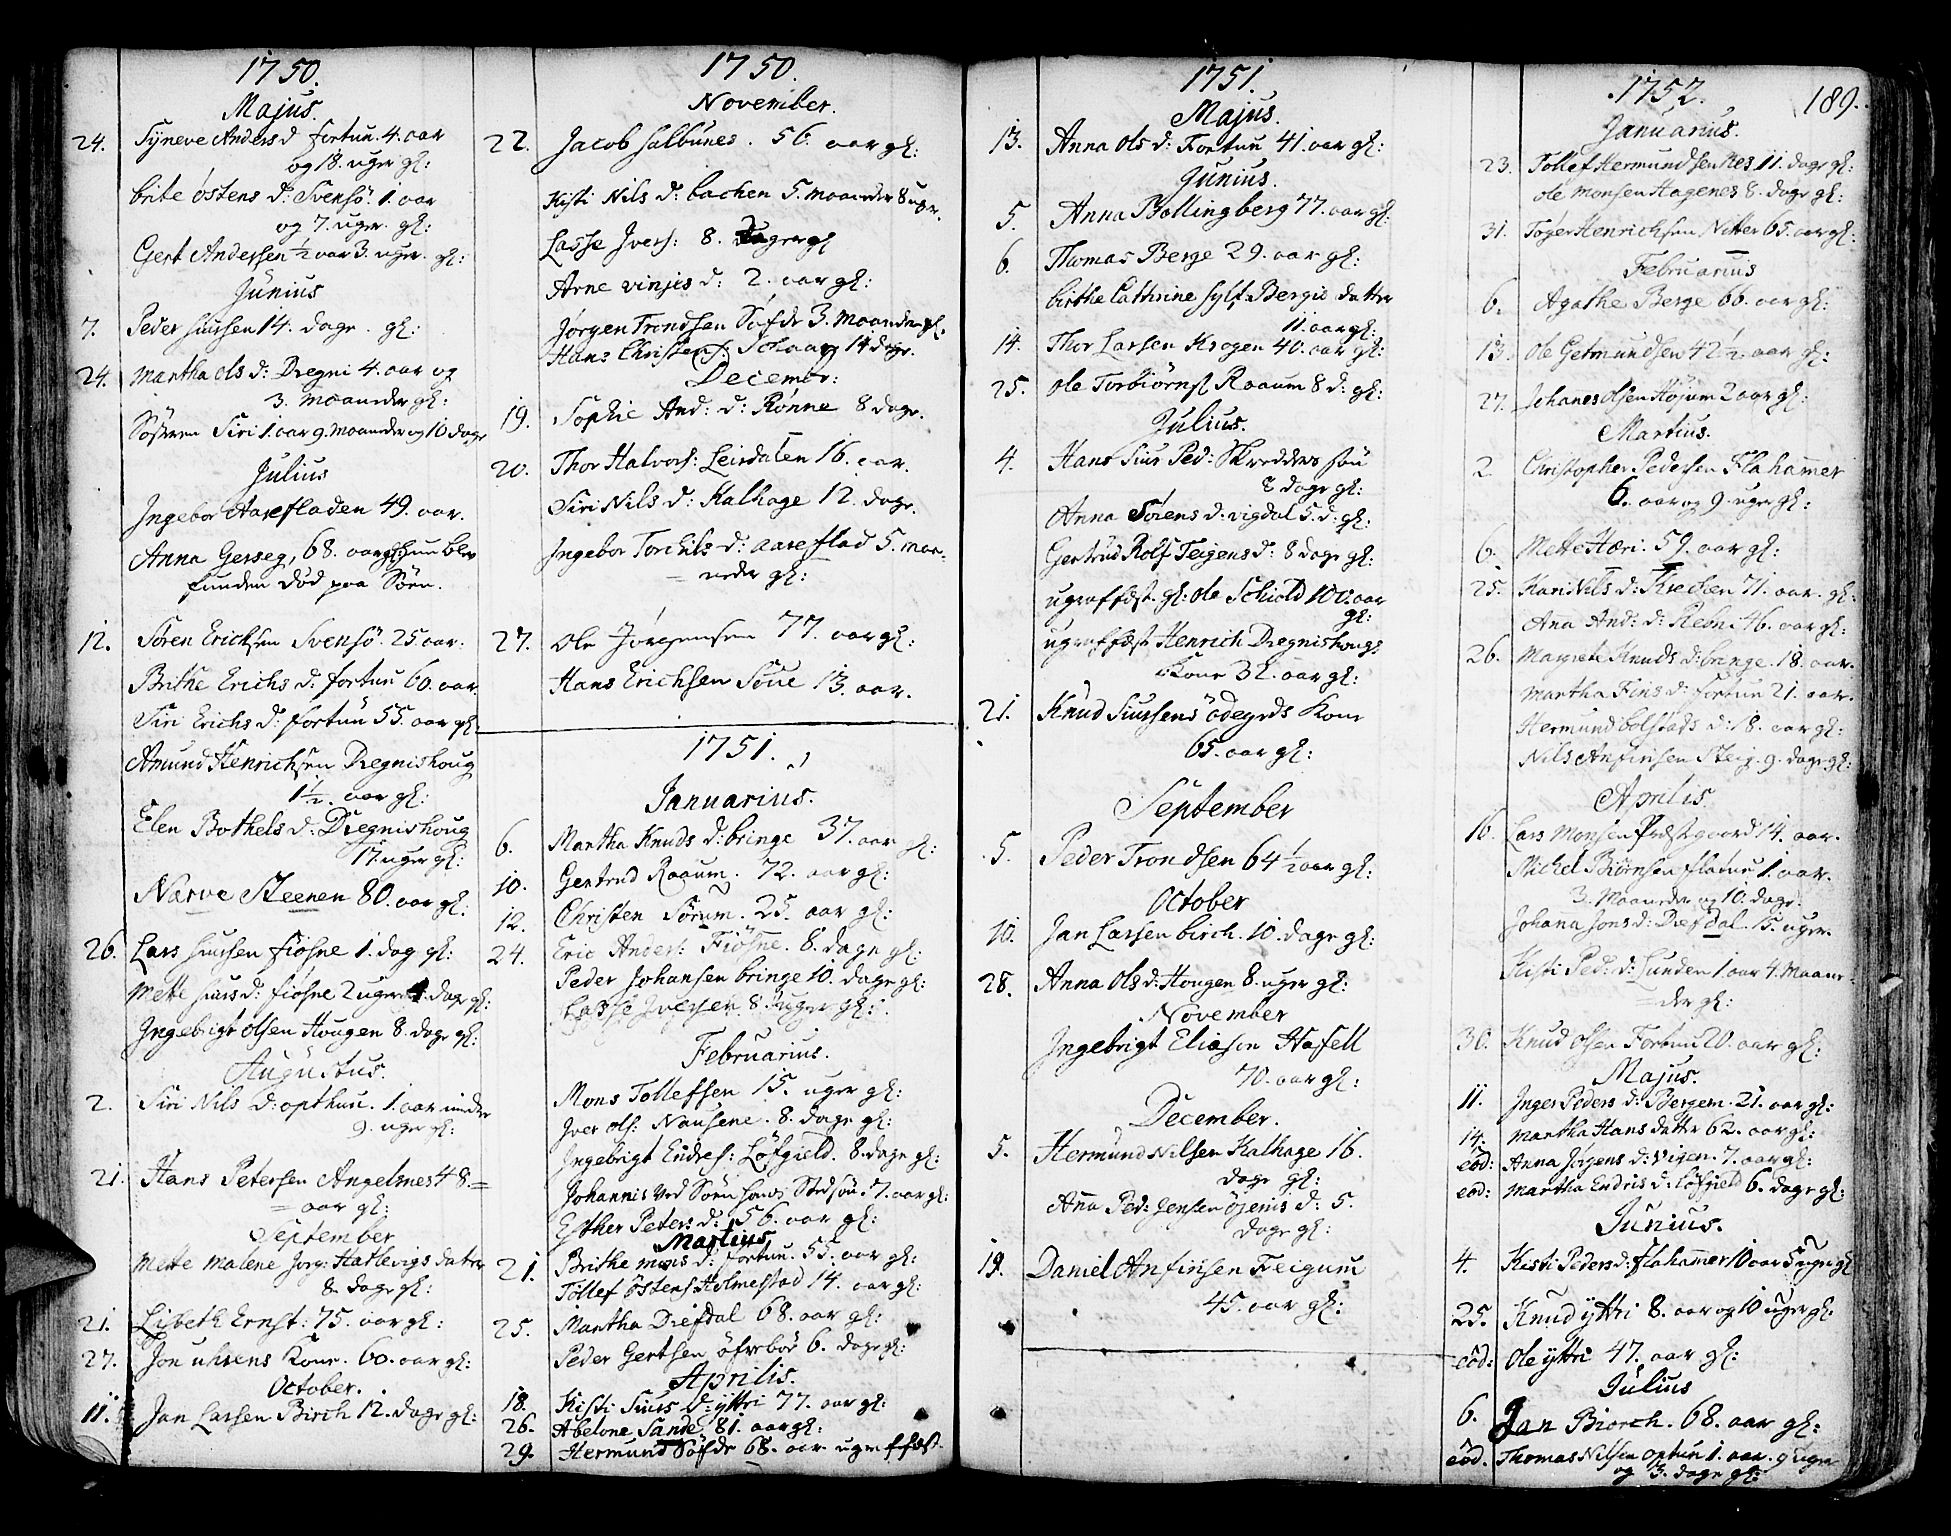 1750.
Majus.
24. Syneve Anders d fortun. 4. aar
og 18. uger gl:
brite östens d: Svensö. 1. aar
og 7. uger. gl:
Gert Andersen ½ aar 3. uger. gl:
Junius
7. Peder siursen 14. dage. gl:
24. Martha ols d: Dregni 4. aar og
3. Maaneder gl:
Söstren Siri 1. aar 9. Maaneder og 10 dage
Julius
Ingebor Aarefladen 49. aar.
Anna Gerseg, 68. aar gl: hun blev
funden död paa Söen.
12. Sören Ericksen Svensö. 25 aar.
Brithe Erichs d: fortun 60. aar.
Siri Erichs d: fortun 55. aar gl:
Amund Henrichsen Dregnishoug
1½. aar gl:
Elen Bothels d: Dregnishoug
17. uger gl:
Narve Steenen 80. aar gl:
26. Lars siursen fiösne 1. dag gl:
Mette siurs d: fiösne 2 uger 4. dage gl:
Ingebrigt olsen Hougen 8. dage gl:
Augustus.
2. Siri Nils d: opthun. 1. aar under
9. uger gl:
21. Hans Petersen Angelsnes 48.=
=aar gl:
September
Mette Malene Jörg: Hatlevigs datter
8 dage gl:
21. Lisbeth Ernst: 75. aar gl:
27. Jon uhrens Kone. 60. aar gl:
October.
11. Jan Larsen Birch 12. dage gl:
1750.
November.
22. Jacob salbunes. 56. aar gl:
Kisti Nils d: bachen 5. maaneder 8 uger.
Lasse Jvers: 8. dager gl
Arne vinjes d: 2. aar gl:
Jörgen Trondsen Söfde 3. Maaneder gl.
Hans Christens: Schaar 14 dage.
Decembr:
19. Sophie And: d: Rönne 8 dage.
20. Thor Halvors: Leirdalen 16. aar.
Siri Nils d: Kalhage 12. dage.
Ingebor Torchils d: aareflad 5. maa-
=neder gl:
27. Ole Jörgensen 77. aar gl:
Hans Erichsen Söue 13. aar.
1751.
Januarius.
6. Martha Knuds d: bringe 37. aar gl:
10. Gertrud Raaum. 72. aar gl:
12. Christen Sörum. 25. aar gl:
24. Eric Anders: Fiösne. 8. dage gl:
Peder Johansen bringe 10. dage gl:
Lasse Jversen 8. uger gl:
Februarius.
Mons Tollefsen 15. uger gl:
Jver ols: Nausene. 8. dage gl:
Ingebrigt Endres: Löfgield. 8. dage gl:
Johannis ved Sören Stedsön. 7. aar gl:
Esther Peters d: 56. aar gl:
Martius
21. Brithe mons d: fortun. 55. aar gl:
Tollef östens: Holmestad 14. aar gl:
25. Martha Diefdal 68. aar gl:
Peder Gertsen öfrebö 6. dage gl:
Aprilis.
18. Kisti Siurs d: yttri 77. aar gl:
26. Abelone Sande. 81. aar gl:
29. Hermund Söfde 68. aar ugraffæst.
1751.
Majus.
13. Anna Ols d: Fortun 41. aar gl:
Junius.
5. Anna Bollingberg 77. aar gl:
6. Thomas Berge 29. aar gl:
birthe Cathrine sylf: Bergis datter
11. aar gl:
14. Thor Larsen Krogen 40. aar gl:
25. Ole Torbiörns Raaum 8 d: gl:
Julius.
4. Hans Siur Ped: Skredders sön
8 dage gl:
Anna Sörens d: vigdal 5. d: gl:
Gertrud Rolf Teigens d: 8 dage gl:
ugraffæst. gl: Ole Schiold 100. aar
gl:
ugraffæst Henrich Dregnishougs
Kone 32. aar gl:
21. Knud Siursens ödegrds Kone
65. aar gl:
September
5. Peder Trondsen 64½ aar gl:
October
10. Jan Larsen birch. 10. dage gl:
28. Anna Ols d: Hougen 8. uger gl:
November
Ingebrigt Eliason Hafell
70. aar gl:
December.
5. Hermund Nilsen Kalhage 16.
dage gl:
Anna Ped: Jensen öjenis d: 5.
dage gl:
19. Daniel Anfinsen Feigum
45. aar gl:
1752. 189.
Januarius.
23. Tollef Hermundsen Nes 11. dage gl:
Ole Monsen Hagenes 8. dage gl:
31. Töger Henrichsen Nitter 65. aar gl:
Februarius
6. Agathe Berge 66. aar gl:
13. Ole Getmundsen 42½. aar gl:
27. Johanes Olsen Höjum 2 aar gl:
Martius.
2. Christopher Pedersen Flahammer
6. aar og 9. uger gl:
6. Mette Hæri. 59. aar gl:
25. Kari Nils d: Kreken 71. aar. gl:
Ana And: d: Rebni 46. aar gl:
26. Margrete Knuds d: bringe. 18. aar.
Martha Fins d: fortun 21. aar.
Hermund bolstads d: 18. aar gl:
Nils Anfinsen Steig. 9. dage gl:
Aprilis.
16. Lars Monsen Præstegaard 14. aar.
Michel Biörnsen flatun 1. aar.
3. Maaneder og 10. dage.
Johana Jons d: Diefdal. 15. uger.
Kisti Ped: d: Lunden 1. aar 4. Maane-
=der gl:
30. Knud Olsen Fortun 20. aar gl:
Majus.
11. Inger Peders d: Bergem. 21. aar gl:
14. Martha Hans datter 62. aar gl:
eod: Anna Jörgens d: Vigen. 7. aar gl:
eod: Martha Endris d: Löfgield 6. dage gl:
Junius.
4. Kisti Peders d: flahammer 10 aar 5 uger gl
25. Knud yttri 8. aar og 10 uger gl:
eod: Ole yttri 47. aar gl:
Julius
6. Jan Biorch. 68. aar gl:
eod. Thomas Nilsen optun 1. aar. 9 uger
og 3. dage gl: